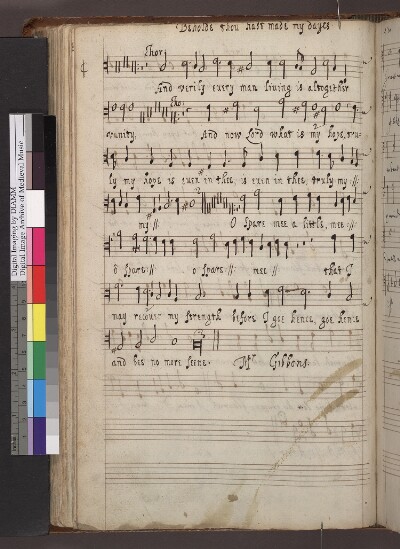 Beholde thou hast made my dayes
Chor
And verily euery man liuing is altogether
vanity. Cho: And now Lord what is my hope, tru-
ly my hope is euen in thee, is euen in thee, truly my ://:
my :// O spare mee a little, mee ://
ô spare :// o spare :// mee :// that I
may recouer my strength before I goe hence, goe hence
and bee no more seene. Mr Gibbons.
Digital Imaging by DIAMM
Digital Image Archive of Medieval Music